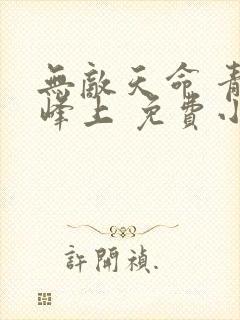 無敵天命 青
峰上 免費小
許開禎.